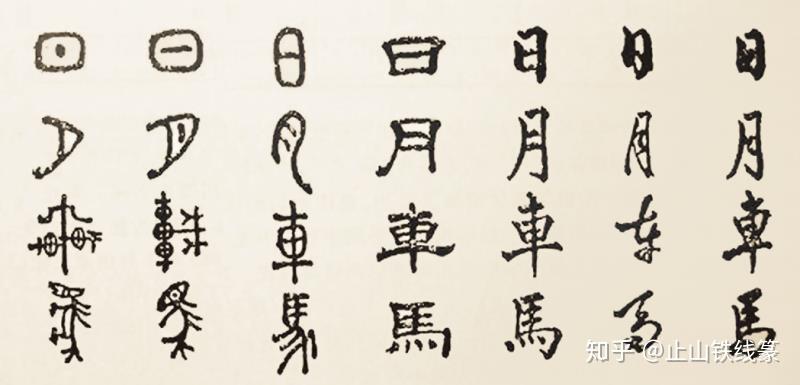 日 日 日 日 日 日 日
月 月 月 月 月 月 月
車 車 車 車 車 車 車
馬 馬 馬 馬 馬 馬 馬
知乎 @止山铁线篆